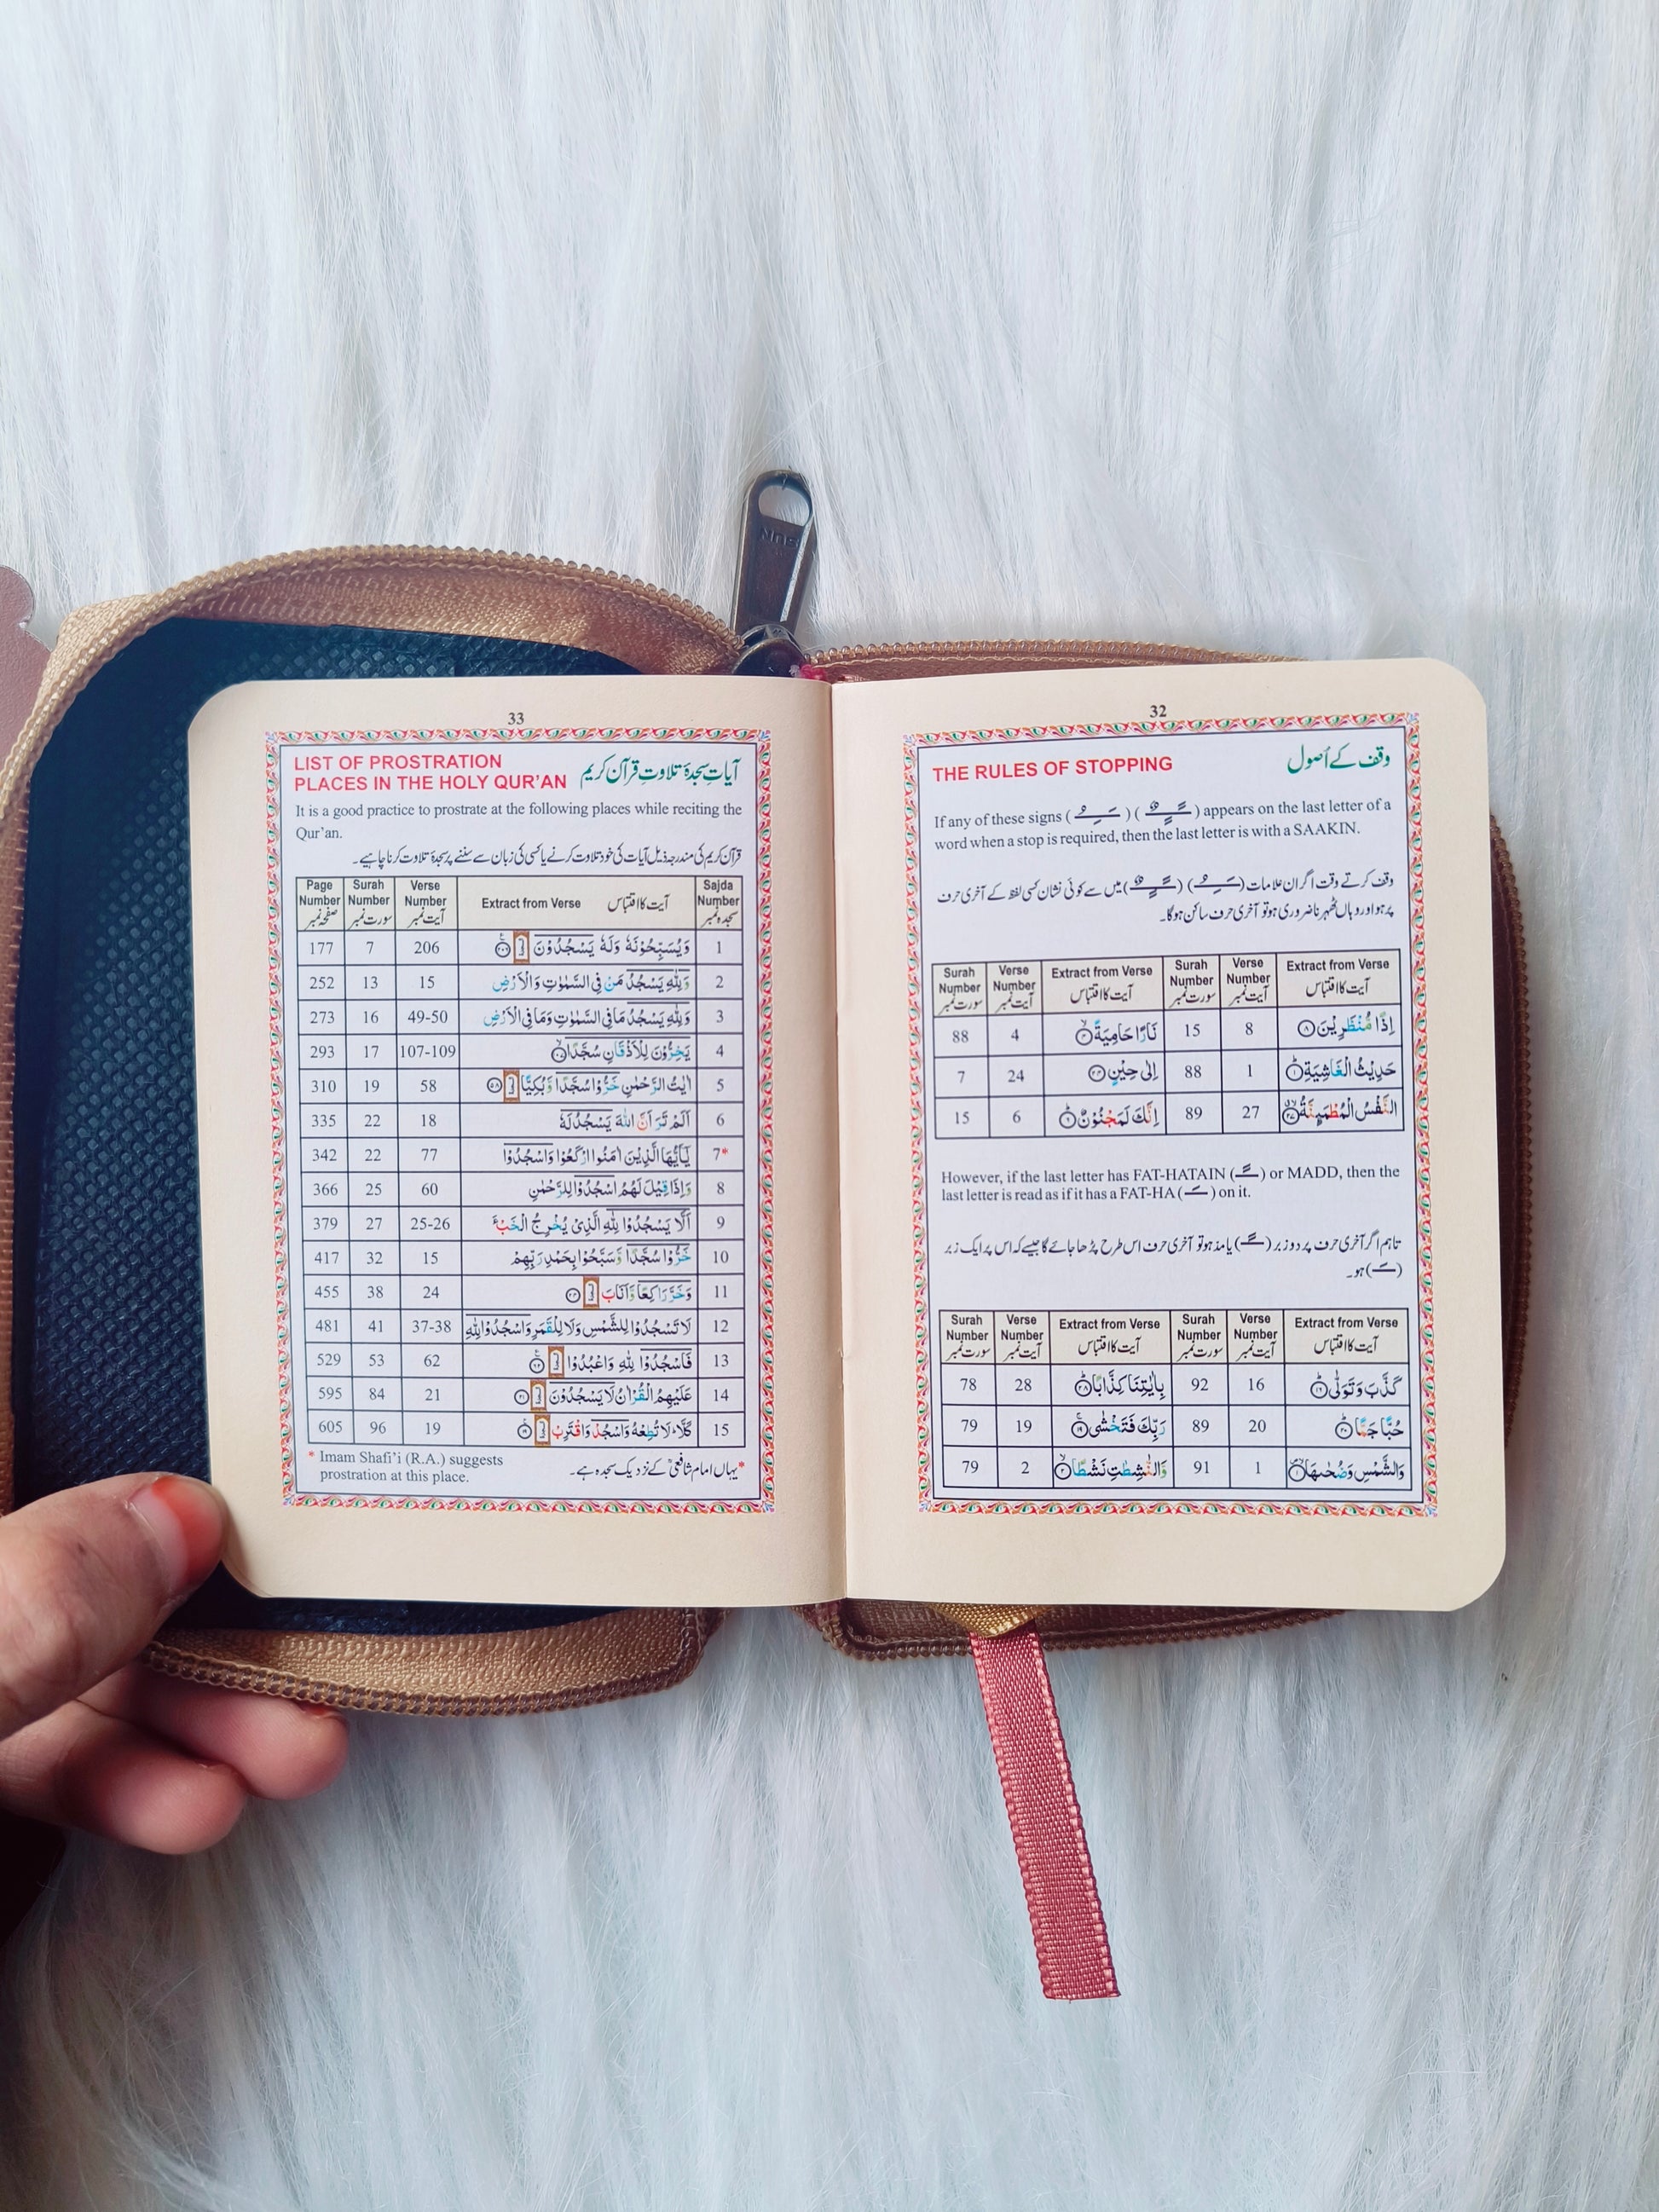 32
THE RULES OF STOPPING وقف کے اُصول
If any of these signs ( ) ( ) appears on the last letter of a
word when a stop is required, then the last letter is with a SAAKIN.
وقف کرتے وقت اگر ان علامات ( ) ( ) میں سے کوئی نشان کسی لفظ کے آخری حرف
پر ہو اور وہاں ٹھہرنا ضروری ہو تو آخری حرف ساکن ہوگا۔
Surah Number سورت نمبر Verse Number آیت نمبر Extract from Verse آیت کا اقتباس Surah Number سورت نمبر Verse Number آیت نمبر Extract from Verse آیت کا اقتباس
88 4 نَارًا حَامِيَةً ۴ 15 8 اِذًا مُّنْظَرِيْنَ ۸
7 24 اِلٰى حِيْنٍ ۲۴ 88 1 حَدِيْثُ الْغَاشِيَةِ ۱
15 6 اِنَّكَ لَمَجْنُوْنٌ ۶ 89 27 النَّفْسُ الْمُطْمَئِنَّةُ ۲۷
However, if the last letter has FAT-HATAIN ( ً ) or MADD, then the
last letter is read as if it has a FAT-HA ( َ ) on it.
تاہم اگر آخری حرف پر دو زبر ( ً ) یا مد ہو تو آخری حرف اس طرح پڑھا جائے گا جیسے کہ اس پر ایک زبر
( َ ) ہو۔
Surah Number سورت نمبر Verse Number آیت نمبر Extract from Verse آیت کا اقتباس Surah Number سورت نمبر Verse Number آیت نمبر Extract from Verse آیت کا اقتباس
78 28 بِاٰيٰتِنَا كِذَّابًا ۲۸ 92 16 كَذَّبَ وَتَوَلّٰى ۱۶
79 19 رَبِّكَ فَتَخْشٰى ۱۹ 89 20 حُبًّا جَمًّا ۲۰
79 2 وَّالنّٰشِطٰتِ نَشْطًا ۲ 91 1 وَالشَّمْسِ وَضُحٰىهَا ۱
33
LIST OF PROSTRATION
PLACES IN THE HOLY QUR'AN آیاتِ سجدۂ تلاوتِ قرآن کریم
It is a good practice to prostrate at the following places while reciting the
Qur'an.
قرآن کریم کی مندرجہ ذیل آیات کی خود تلاوت کرنے یا کسی کی زبان سے سننے پر سجدۂ تلاوت کرنا چاہیے۔
Page Number صفحہ نمبر Surah Number سورت نمبر Verse Number آیت نمبر Extract from Verse آیت کا اقتباس Sajda Number سجدہ نمبر
177 7 206 وَيُسَبِّحُوْنَهٗ وَلَهٗ يَسْجُدُوْنَ ۲۰۶ 1
252 13 15 وَلِلّٰهِ يَسْجُدُ مَنْ فِى السَّمٰوٰتِ وَالْاَرْضِ 2
273 16 49-50 وَلِلّٰهِ يَسْجُدُ مَا فِى السَّمٰوٰتِ وَمَا فِى الْاَرْضِ 3
293 17 107-109 يَخِرُّوْنَ لِلْاَذْقَانِ سُجَّدًا 4
310 19 58 اٰيٰتُ الرَّحْمٰنِ خَرُّوْا سُجَّدًا وَّبُكِيًّا ۵۸ 5
335 22 18 اَلَمْ تَرَ اَنَّ اللّٰهَ يَسْجُدُ لَهٗ 6
342 22 77 يٰۤاَيُّهَا الَّذِيْنَ اٰمَنُوا ارْكَعُوْا وَاسْجُدُوْا 7*
366 25 60 وَاِذَا قِيْلَ لَهُمُ اسْجُدُوْا لِلرَّحْمٰنِ 8
379 27 25-26 اَلَّا يَسْجُدُوْا لِلّٰهِ الَّذِىْ يُخْرِجُ الْخَبْءَ 9
417 32 15 خَرُّوْا سُجَّدًا وَّسَبَّحُوْا بِحَمْدِ رَبِّهِمْ 10
455 38 24 وَخَرَّ رَاكِعًا وَّاَنَابَ ۲۴ 11
481 41 37-38 لَا تَسْجُدُوْا لِلشَّمْسِ وَلَا لِلْقَمَرِ وَاسْجُدُوْا لِلّٰهِ 12
529 53 62 فَاسْجُدُوْا لِلّٰهِ وَاعْبُدُوْا ۶۲ 13
595 84 21 عَلَيْهِمُ الْقُرْاٰنُ لَا يَسْجُدُوْنَ ۲۱ 14
605 96 19 كَلَّا لَا تُطِعْهُ وَاسْجُدْ وَاقْتَرِبْ ۱۹ 15
* Imam Shafi'i (R.A.) suggests
prostration at this place.
*یہاں امام شافعیؒ کے نزدیک سجدہ ہے۔